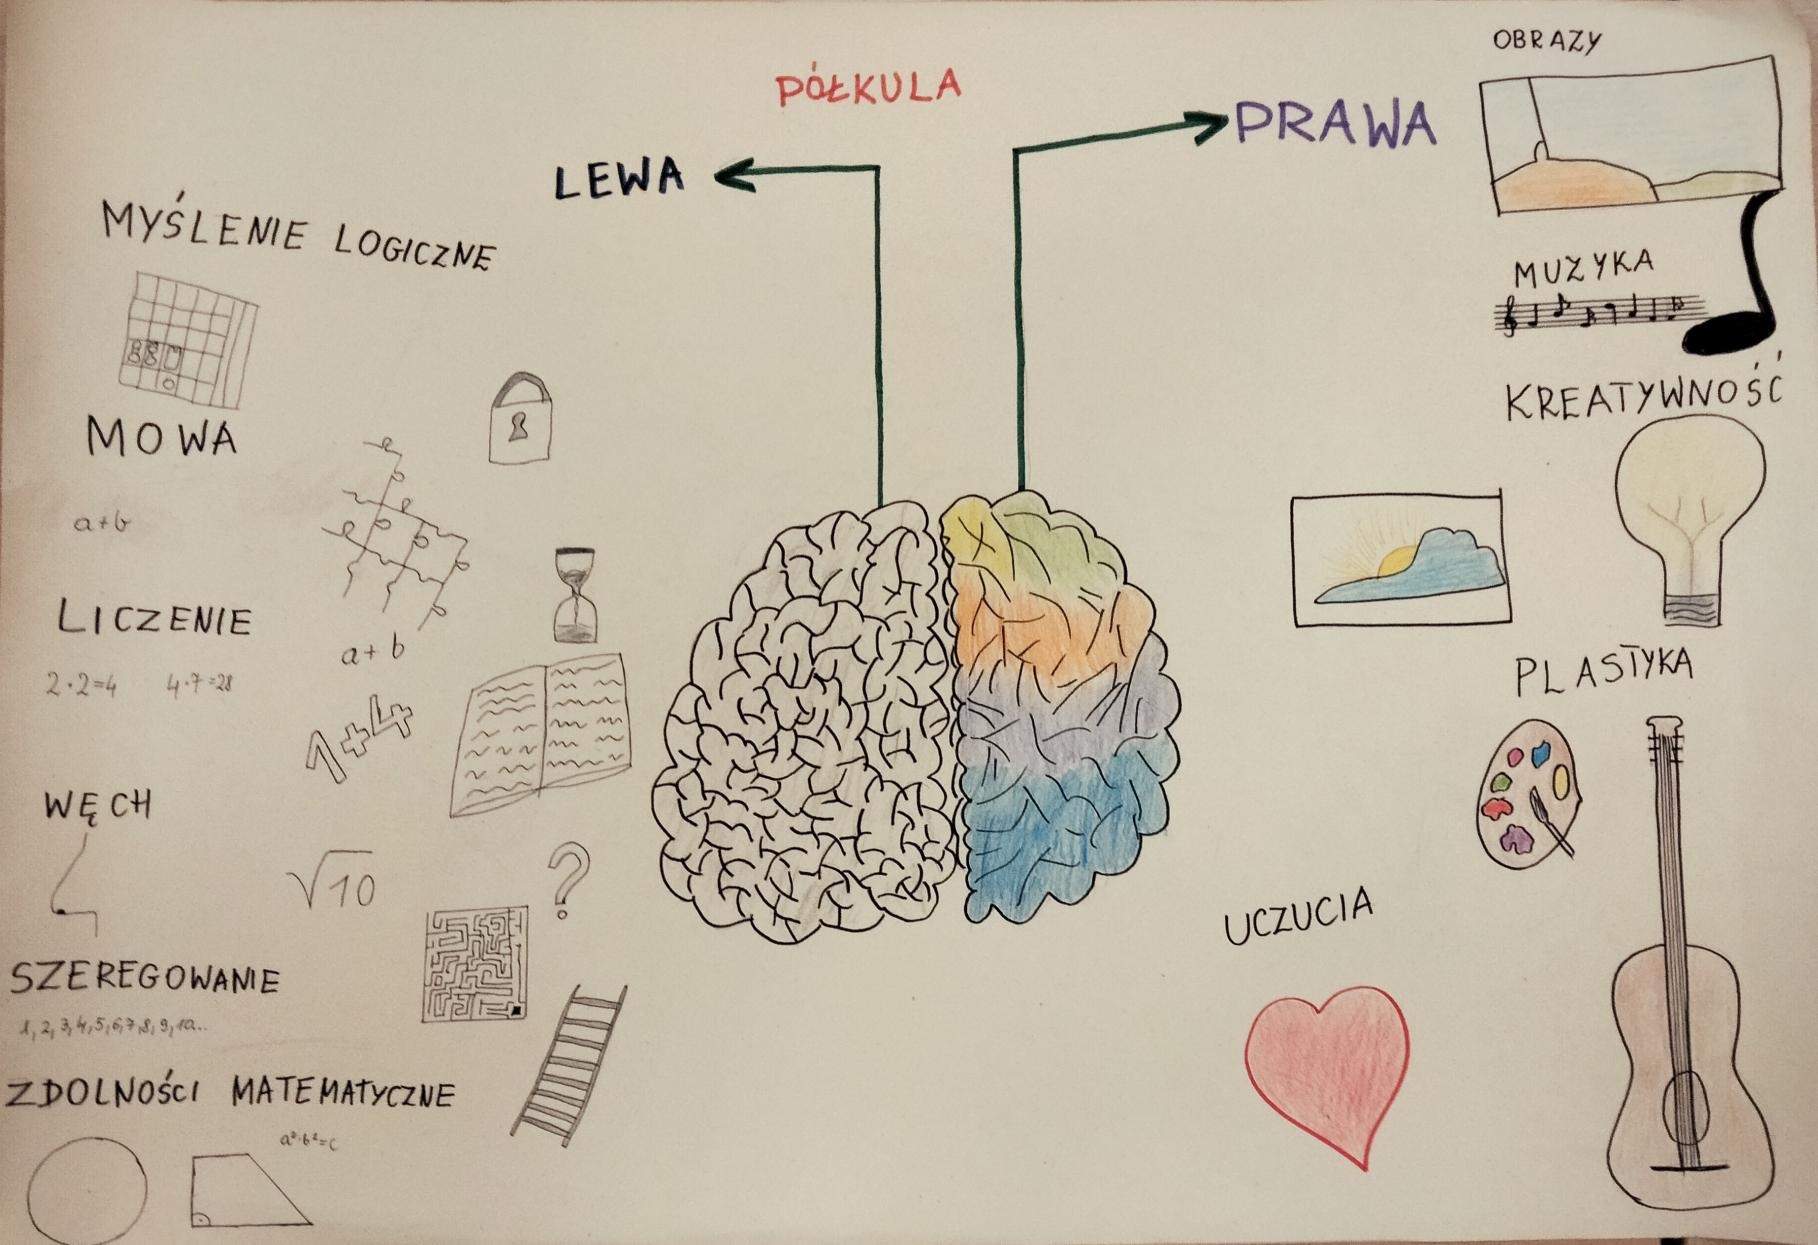 PÓŁKULA
LEWA
MYŚLENIE LOGICZNE
MOWA
a+b
LICZENIE
2·2=4 4·7=28
a+b
1+4
WĘCH
√10
?
SZEREGOWANIE
1,2,3,4,5,6,7,8,9,10..
ZDOLNOŚCI MATEMATYCZNE
a²·b²=c
PRAWA
OBRAZY
MUZYKA
KREATYWNOŚĆ
PLASTYKA
UCZUCIA